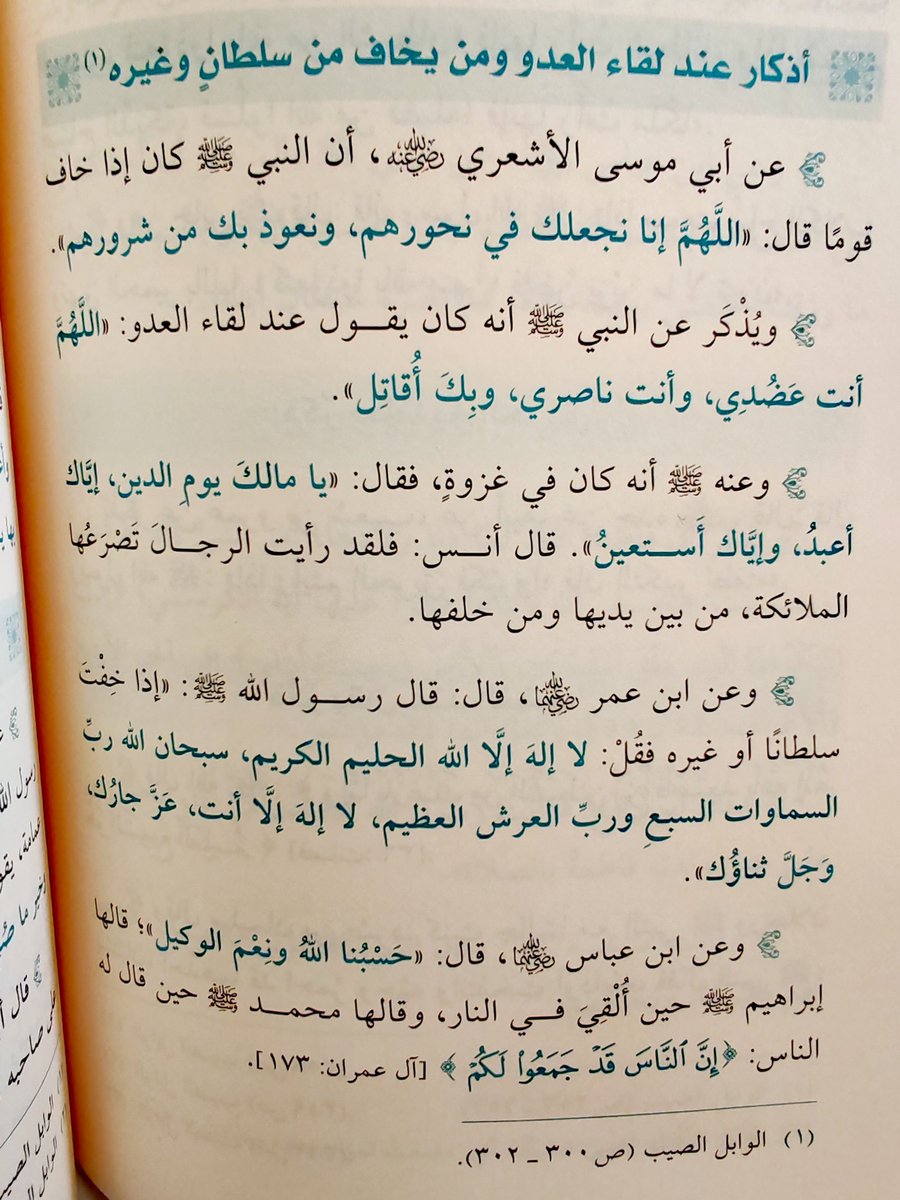 أذكار عند لقاء العدو ومن يخاف من سلطانٍ وغيره (١)
عن أبي موسى الأشعري رضي الله عنه، أن النبي ﷺ كان إذا خاف
قومًا قال: «اللَّهُمَّ إنا نجعلك في نحورهم، ونعوذ بك من شرورهم».
ويُذْكَر عن النبي ﷺ أنه كان يقول عند لقاء العدو: «اللَّهُمَّ
أنت عَضُدِي، وأنت ناصري، وبِكَ أُقاتِل».
وعنه ﷺ أنه كان في غزوةٍ، فقال: «يا مالكَ يومِ الدين، إيَّاك
أعبدُ، وإيَّاك أَستعينُ». قال أنس: فلقد رأيت الرجالَ تَصْرَعُها
الملائكة، من بين يديها ومن خلفها.
وعن ابن عمر رضي الله عنهما، قال: قال رسول الله ﷺ: «إذا خِفْتَ
سلطانًا أو غيره فقُلْ: لا إلهَ إلَّا الله الحليم الكريم، سبحان الله ربِّ
السماوات السبعِ وربِّ العرش العظيم، لا إلهَ إلَّا أنت، عَزَّ جارُك،
وَجَلَّ ثناؤُك».
وعن ابن عباس رضي الله عنهما، قال: «حَسْبُنا اللهُ ونِعْمَ الوكيل»؛ قالها
إبراهيم ﷺ حين أُلْقِيَ في النار، وقالها محمد ﷺ حين قال له
الناس: ﴿إِنَّ ٱلنَّاسَ قَدْ جَمَعُوا۟ لَكُمْ﴾ [آل عمران: ١٧٣].
(١) الوابل الصيب (ص ٣٠٠ ـ ٣٠٢).